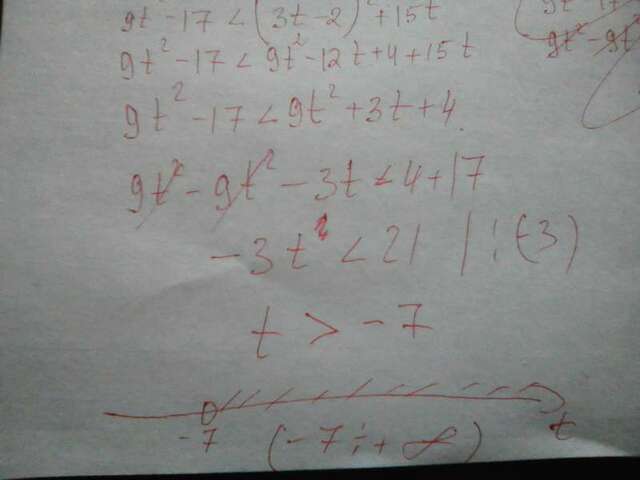 9t² - 17 < (3t - 2)² + 15t
9t² - 17 < 9t² - 12t + 4 + 15t
9t² - 17 < 9t² + 3t + 4
9t² - 9t² - 3t < 4 + 17
- 3t² < 21 | : (-3)
t > - 7
-7 (-7; + ∞) t